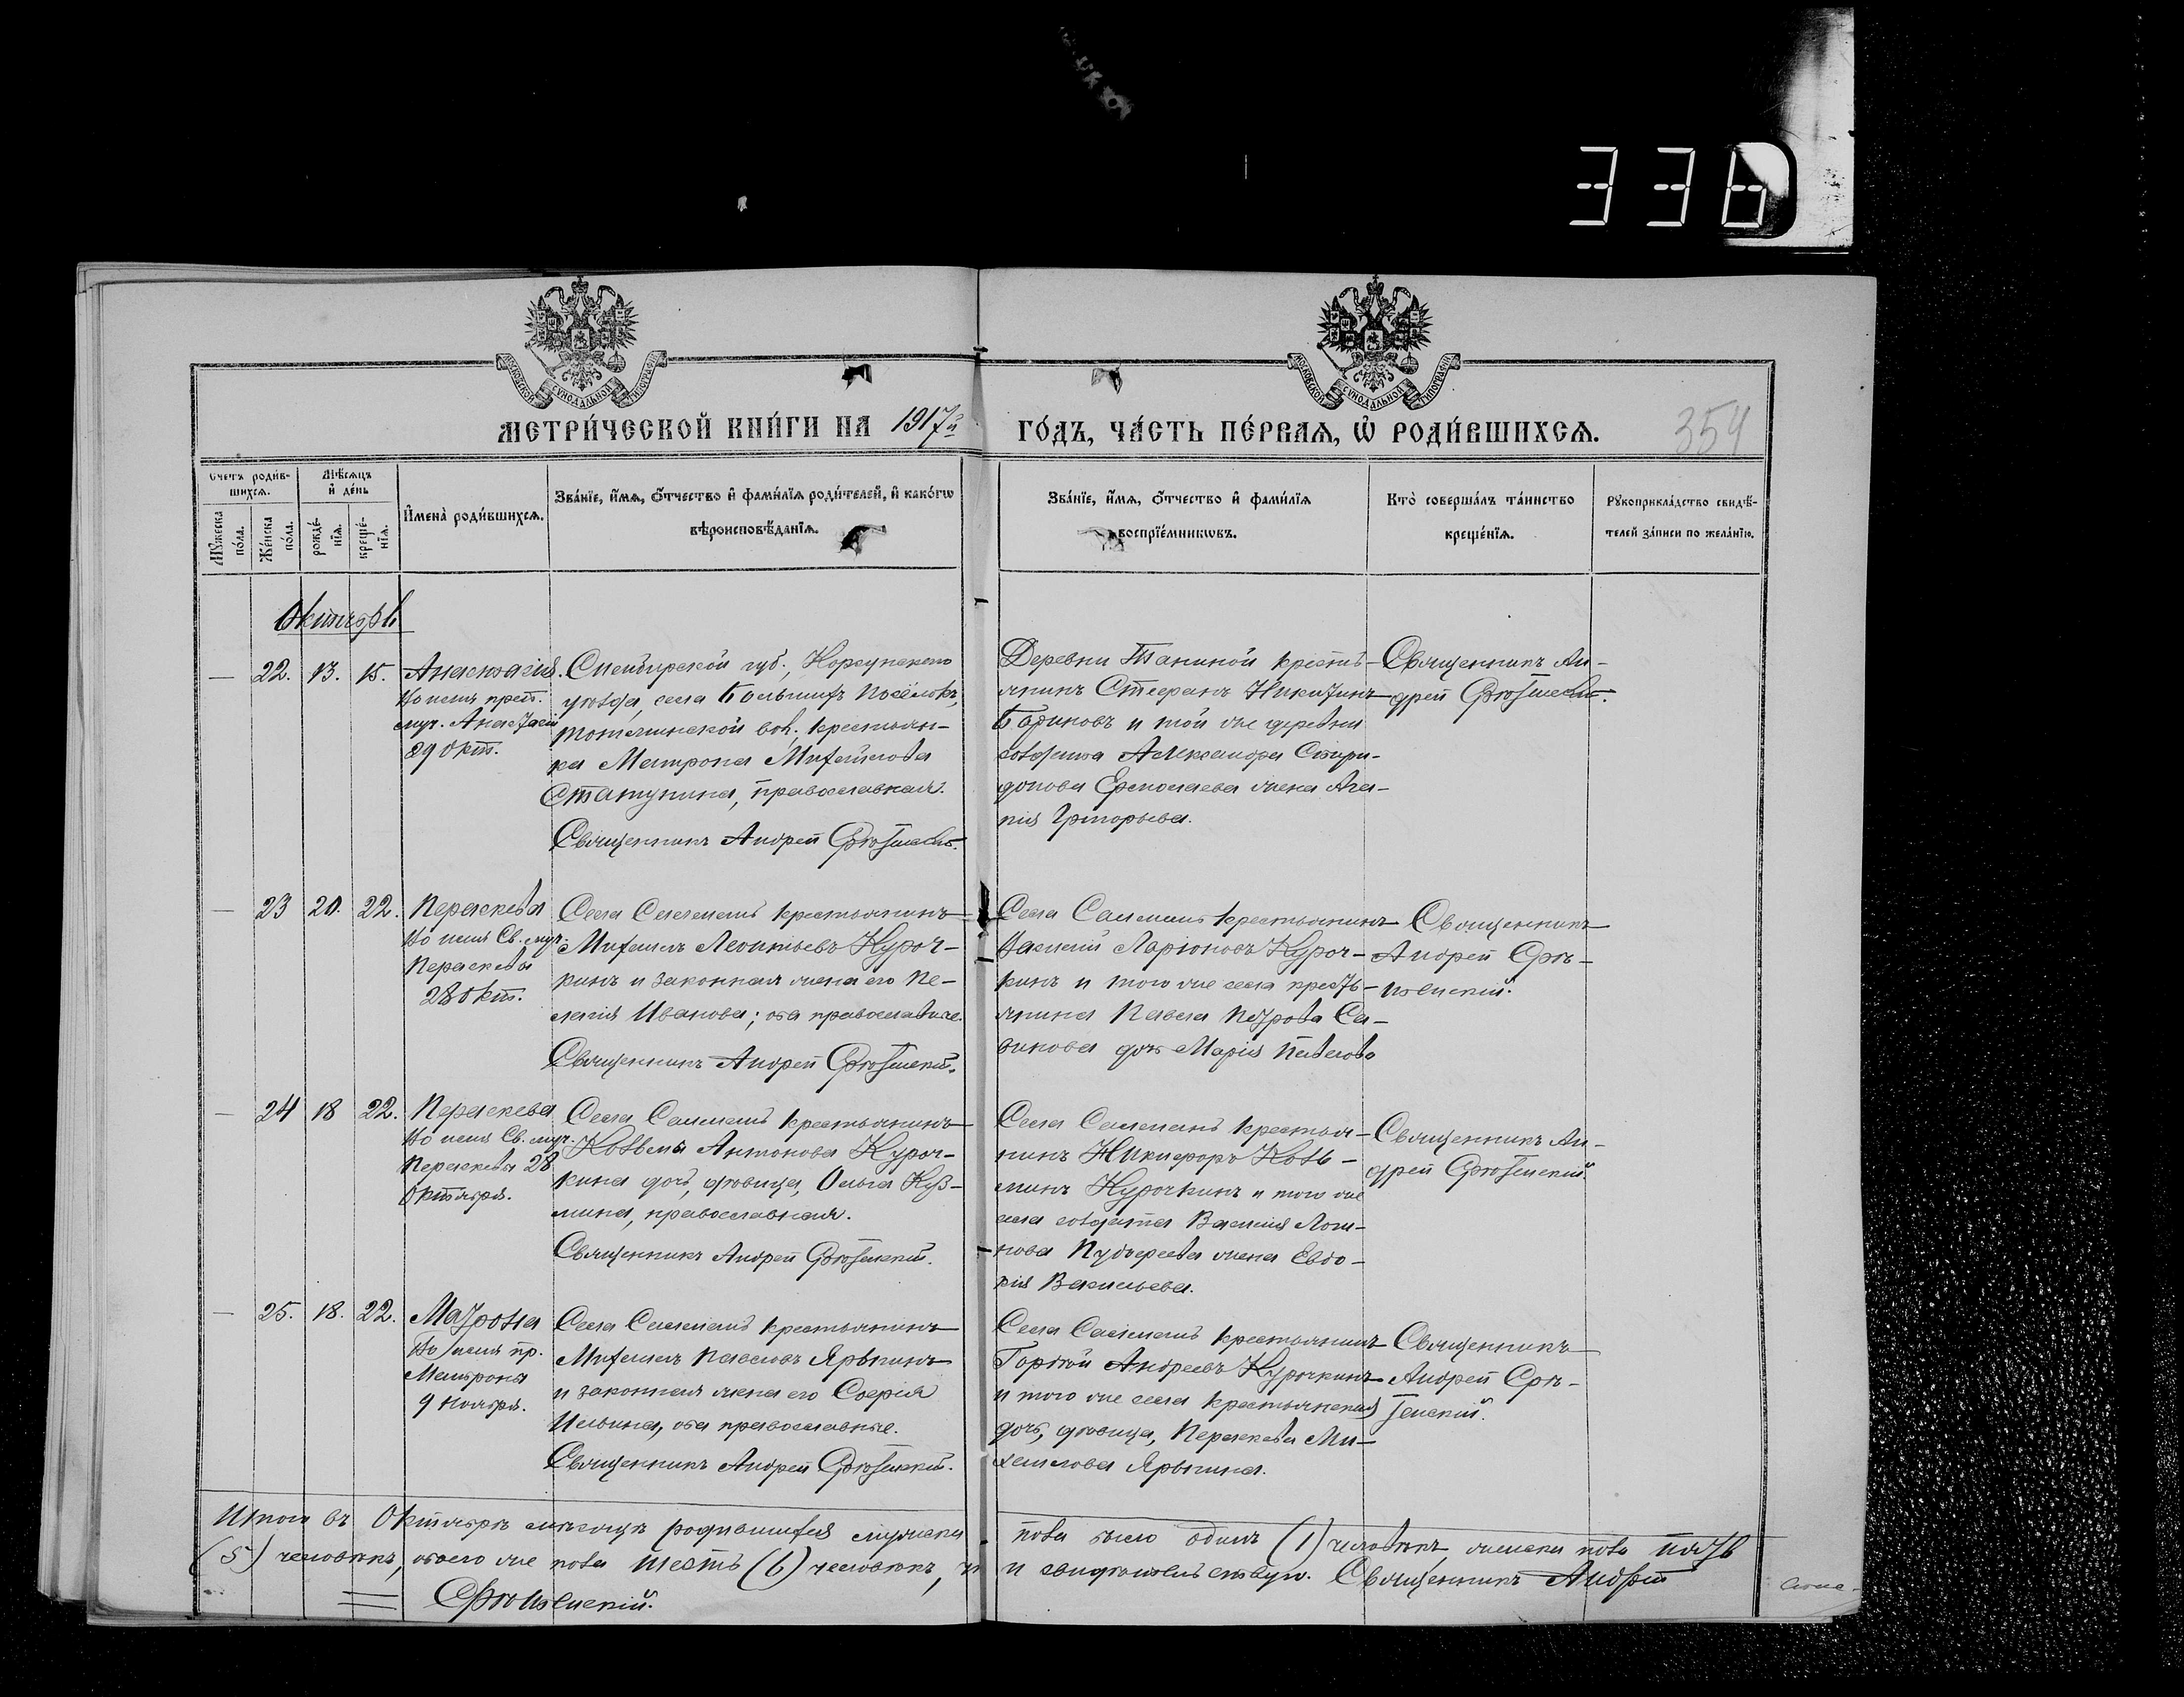 336
МОСКОВСКОЙ СУНОДАЛЬНОЙ ТИПОГРАФІИ
МОСКОВСКОЙ СУНОДАЛЬНОЙ ТИПОГРАФІИ
МЕТРИ́ЧЕСКОЙ КНИ́ГИ НА 1917й
ГО́ДЪ, ЧА́СТЬ ПЕ́РВАѦ, Ѡ҆ РОДИ́ВШИХСѦ.
354
Счетъ роди́в-
шихсѧ.
Мѣ́сѧцъ
и҆ де́нь
Мꙋ́жеска
по́ла.
Же́нска
по́ла.
рожде́-
нїѧ.
креще́-
нїѧ.
И҆мена̀ роди́вшихсѧ.
Зва́нїе, и҆́мѧ, ѻ҆́тчество и҆ фами́лїѧ роди́телей, и҆ како́гѡ
вѣроисповѣ́данїѧ.
Зва́нїе, и҆́мѧ, ѻ҆́тчество и҆ фами́лїѧ
воспрїе́мникѡвъ.
Кто̀ соверша́лъ та́инство
креще́нїѧ.
Рꙋкоприкла́дство свидѣ́-
телей за́писи по жела́нїю.
Октябрь
— 22. 13. 15. Анастасія.
Во имя преп.
муч. Анастасіи
29 окт.
Симбирской губ., Корсунскаго
уѣзда, села Большихъ Посёлокъ,
вол., крестьян-
ка Матрона Михайлова
Статупина, православная.
Священникъ Андрей Срѣтенскій.
Деревни Таниной кресть-
янинъ Стефанъ Никитинъ
Бариновъ и той же деревни
солдата Александра Спири-
донова Ермолаева жена Ага-
пія Григорьева.
Священникъ Ан-
дрей Срѣтенскій.
— 23 20. 22. Параскева
Во имя Св. муч.
Параскевы
28 окт.
Села крестьянинъ
Михаилъ Леонтьевъ Куроч-
кинъ и законная жена его Пе-
лагія Иванова; оба православные.
Священникъ Андрей Срѣтенскій.
Села крестьянинъ
Василій Ларіоновъ Куроч-
кинъ и того же села кресть-
янина Павла Петрова Са-
викова дочь Марія Павлова
Священникъ
Андрей Срѣ-
тенскій.
— 24 18 22. Параскева
Во имя Св. муч.
Параскевы 28
Октября.
Села крестьянина
Козьмы Антонова Куроч-
кина дочь, дѣвица, Ольга Куз-
мина, православная.
Священникъ Андрей Срѣтенскій.
Села крестья-
нинъ Никифоръ Козь-
минъ Курочкинъ и того же
села солдата Василія Логи-
нова жена Евдо-
кія Васильева.
Священникъ Ан-
дрей Срѣтенскій.
— 25. 18. 22. Матрона
Во имя пр.
Матроны
9 ноября.
Села крестьянинъ
Михаилъ Павловъ Ярыкинъ
и законная жена его Софія
Ильина, оба православные.
Священникъ Андрей Срѣтенскій.
Села крестьянинъ
Гордѣй Андреевъ Курочкинъ
и того же села крестьянская
дочь, дѣвица, Параскева Ми-
хаилова Ярыкина.
Священникъ
Андрей Срѣ-
тенскій.
Итого въ Октябрѣ мѣсяцѣ родившихся мужеска пола было одинъ (1) человѣкъ, женска пола пять
(5) человѣкъ, обоего же пола шесть (6) человѣкъ, и свидѣтельствую. Священникъ Андрей
Срѣтенскій.